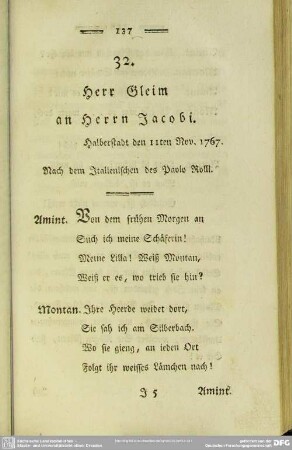 137
32.
Herr Gleim
an Herrn Jacobi.
Halberstadt den 11ten Nov. 1767.
Nach dem Italienischen des Pavlo Rolli.
Amint. Von dem frühen Morgen an
Such ich meine Schäferin!
Meine Lilla! Weiß Montan,
Weiß er es, wo trieb sie hin?
Montan. Ihre Heerde weidet dort,
Sie sah ich am Silberbach.
Wo sie gieng, an ieden Ort
Folgt ihr weisses Lämchen nach!
J 5 Amint.
DFG